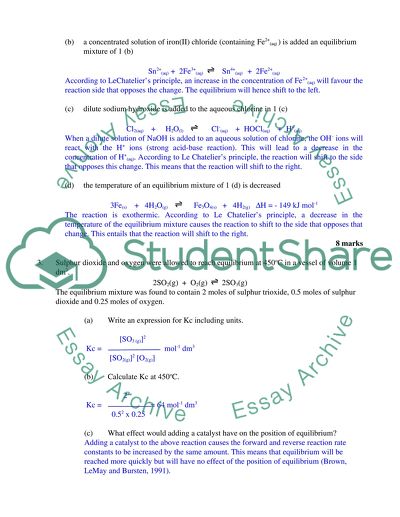 (b) a concentrated solution of iron(II) chloride (containing Fe²⁺₍ₐq₎) is added an equilibrium
mixture of 1 (b)
Sn²⁺(aq) + 2Fe³⁺(aq) ⇌ Sn⁴⁺(aq) + 2Fe²⁺
According to LeChatelier's principle, an increase in the concentration of Fe²⁺(aq) will favour the
reaction side that opposes the change. The equilibrium will hence shift to the left.
(c) dilute sodium hydroxide is added to the aqueous chlorine in 1 (c)
Cl₂(aq) + H₂O(l) ⇌ Cl⁻(aq) + HOCl(aq) + H⁺(aq)
When a dilute solution of NaOH is added to an aqueous solution of chlorine, the OH⁻ ions will
react with the H⁺ ions (strong acid-base reaction). This will lead to a decrease in the
concentration of H⁺(aq). According to Le Chatelier's principle, the reaction will shift to the side
that opposes this change. This means that the reaction will shift to the right.
(d) the temperature of an equilibrium mixture of 1 (d) is decreased
3Fe(s) + 4H₂O(g) ⇌ Fe₃O₄(s) + 4H₂(g) ΔH = - 149 kJ mol⁻¹
The reaction is exothermic. According to Le Chatelier's principle, a decrease in the
temperature of the equilibrium mixture causes the reaction to shift to the side that opposes that
change. This entails that the reaction will shift to the right.
8 marks
3. Sulphur dioxide and oxygen were allowed to reach equilibrium at 450°C in a vessel of volume 1
dm³.
2SO₂(g) + O₂(g) ⇌ 2SO₃(g)
The equilibrium mixture was found to contain 2 moles of sulphur trioxide, 0.5 moles of sulphur
dioxide and 0.25 moles of oxygen.
(a) Write an expression for Kc including units.
[SO₃(g)]²
Kc = mol⁻¹ dm³
[SO₂(g)]² [O₂(g)]
(b) Calculate Kc at 450°C.
2²
Kc = = 64 mol⁻¹ dm³
0.5² x 0.25
(c) What effect would adding a catalyst have on the position of equilibrium?
Adding a catalyst to the above reaction causes the forward and reverse reaction rate
constants to be increased by the same amount. This means that equilibrium will be
reached more quickly but will have no effect of the position of equilibrium (Brown,
LeMay and Bursten, 1991).
StudentShare
Essay Archive
Essay Archive
Essay Archive
Essay Archive